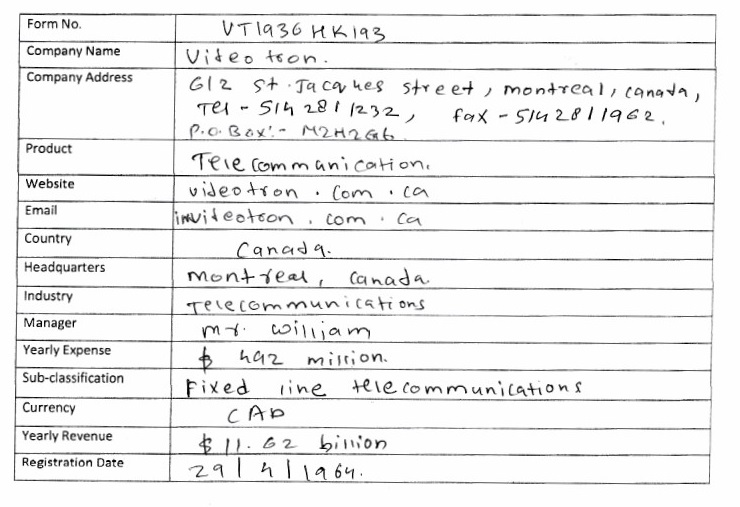 Form No. VT1936HK193
Company Name Videotron.
Company Address 612 St. Jacques street, montreal, canada,
Tel - 514 281 1232, fax - 514 281 1962.
P.O. Box:- M2H2G6
Product Telecommunication.
Website videotron.com.ca
Email invideotron.com.ca
Country Canada.
Headquarters montreal, canada
Industry Telecommunications
Manager mr. william
Yearly Expense $ 492 million.
Sub-classification Fixed line telecommunications
Currency CAD
Yearly Revenue $ 11.62 billion
Registration Date 29/4/1964.